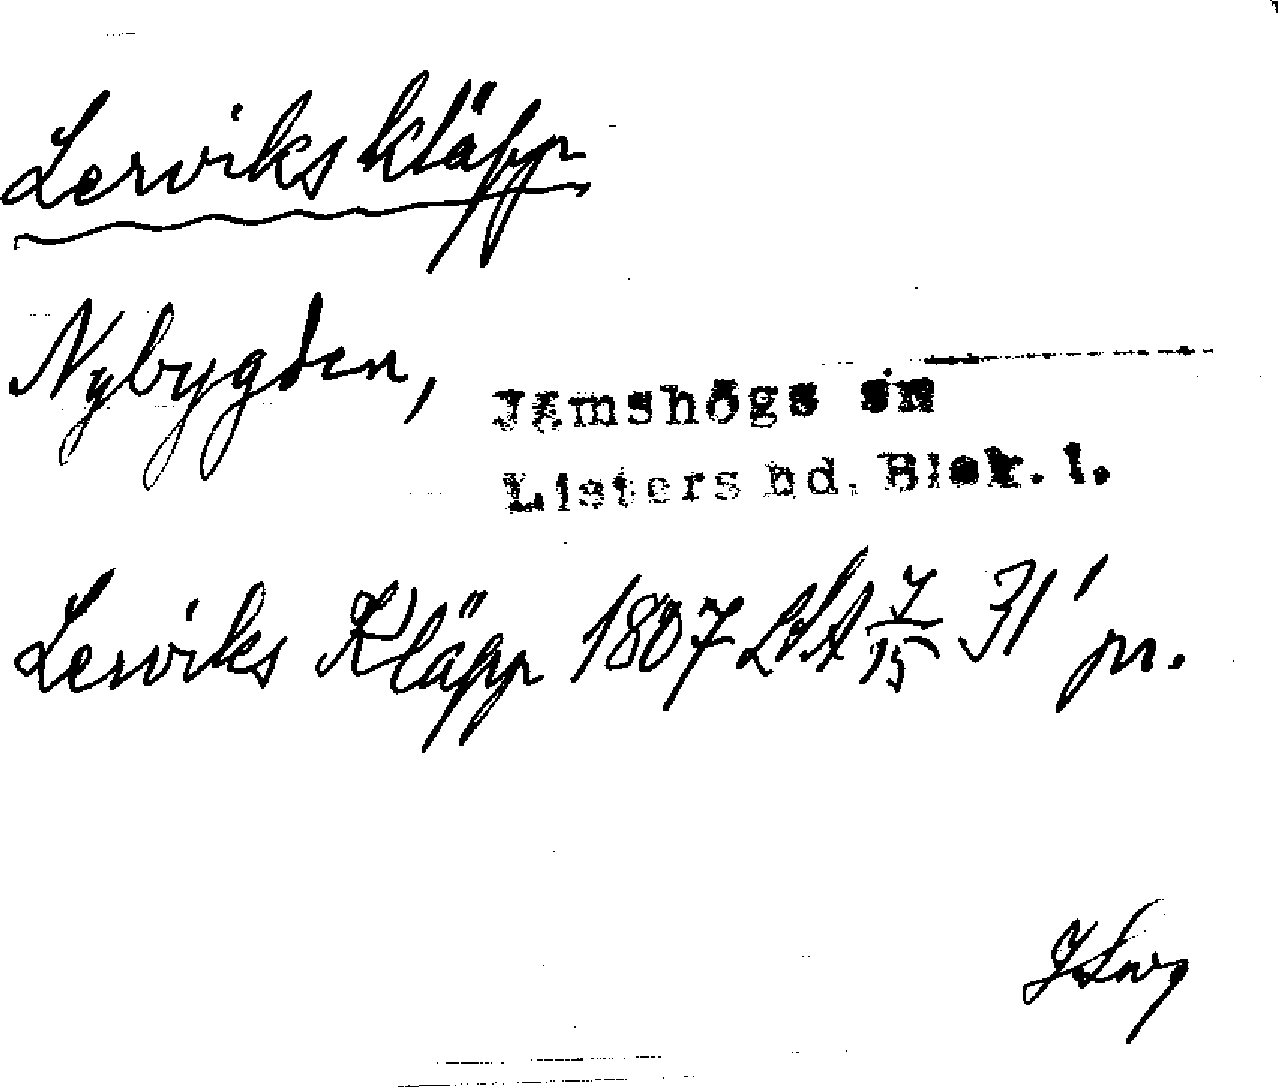 Lerviks kläpp
Nybygden,
Jämshögs sn
Listers hd. Blek. l.
Lerviks Kläpp 1807 LSA 7/15 31' pr.